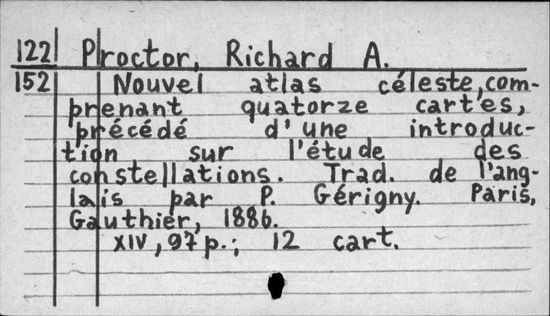 122 Proctor, Richard A.
152 Nouvel atlas céleste, com-
prenant quatorze cartes,
précédé d'une introduc-
tion sur l'étude des
constellations. Trad. de l'ang-
lais par P. Gérigny. Paris,
Gauthier, 1886.
XIV, 97 p.; 12 cart.